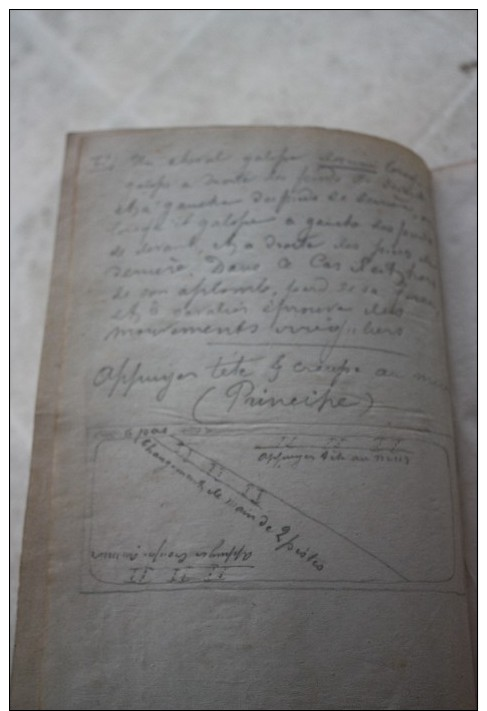 Un cheval galope désuni lorsqu'il
galope a droite des pieds de devant
et a gauche des pieds de derrière, ou
lorsqu'il galope a gauche des pieds
de devant, et a droite des pieds de
derrière. Dans ce cas il est hors
de son aplomb, perd de sa force
et le cavalier éprouve des
mouvements irréguliers
Appuyer tête & croupe au mur
(Principe)
6 pas
Appuyer tête au mur
Changement de main de 2 pistes
Appuyer croupe au mur